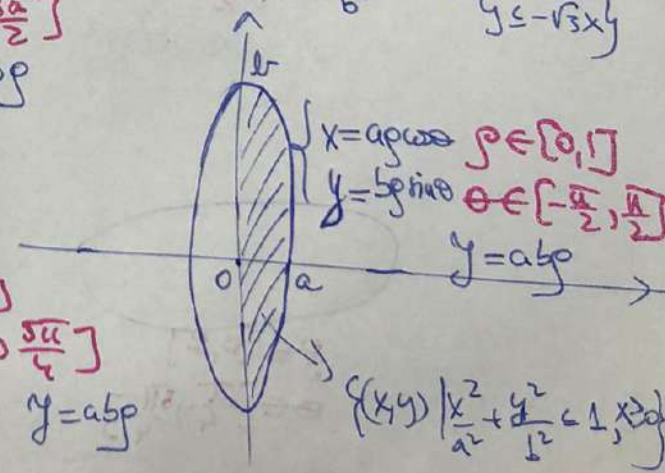 b
y ≤ -√3x}
b
x = aρcosθ ρ ∈ [0,1]
y = bρsinθ θ ∈ [-π/2, π/2]
J = abρ
0 a
5π/4]
J = abρ
{(x,y) | x²/a² + y²/b² ≤ 1, x≥0}